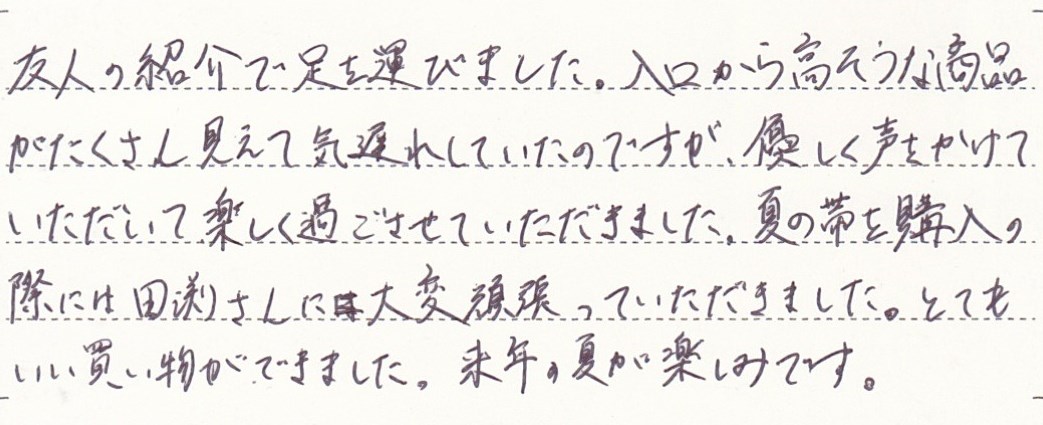 友人の紹介で足を運びました。入口から高そうな商品
がたくさん見えて気遅れしていたのですが、優しく声をかけて
いただいて楽しく過ごさせていただきました。夏の帯を購入の
際には田渕さんには大変頑張っていただきました。とても
いい買い物ができました。来年の夏が楽しみです。